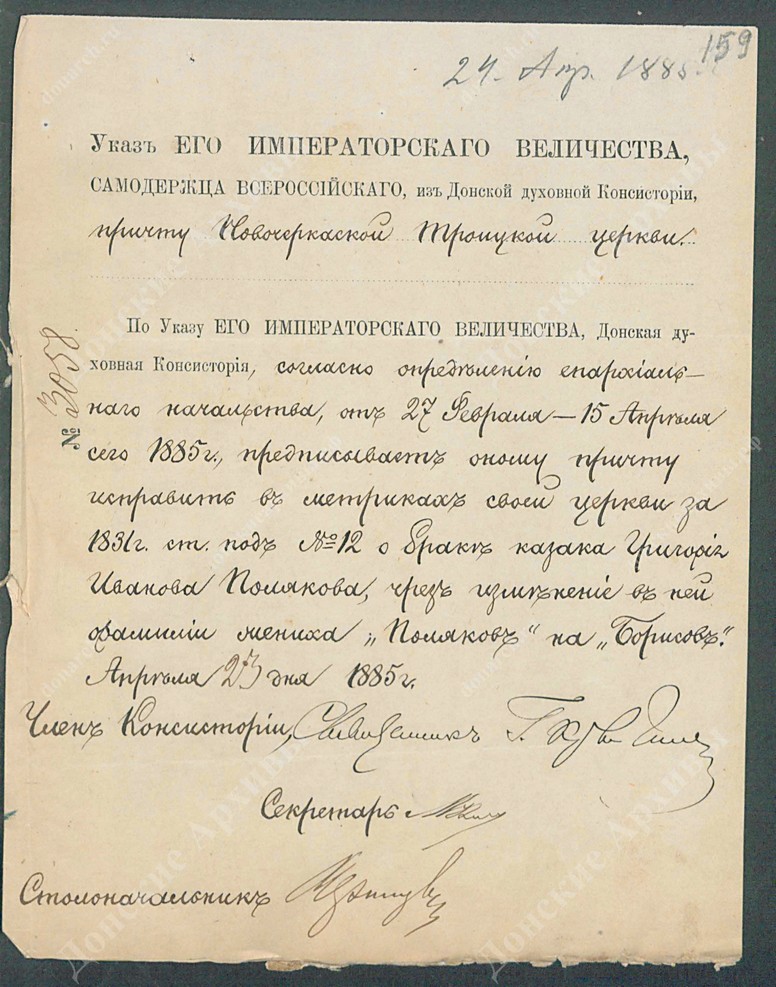 159
24 Апр. 1885
Указъ ЕГО ИМПЕРАТОРСКАГО ВЕЛИЧЕСТВА,
САМОДЕРЖЦА ВСЕРОССІЙСКАГО, изъ Донской духовной Консисторіи,
причту Новочеркаской Троицкой церкви.
№ 3058.
По Указу ЕГО ИМПЕРАТОРСКАГО ВЕЛИЧЕСТВА, Донская ду-
ховная Консисторія, согласно опредѣленію епархіаль-
наго начальства, отъ 27 Февраля — 15 Апрѣля
сего 1885 г., предписываетъ оному причту
исправить въ метрикахъ своей церкви за
1831 г. ст. подъ №12 о бракѣ казака Григорія
Иванова Полякова, чрезъ измѣненіе въ ней
фамиліи жениха „Поляковъ“ на „Борисовъ“.
Апрѣля 23 дня 1885 г.
Членъ Консисторіи, Священникъ Г.
Секретарь
Столоначальникъ
Донские Архивы
donarch.ru